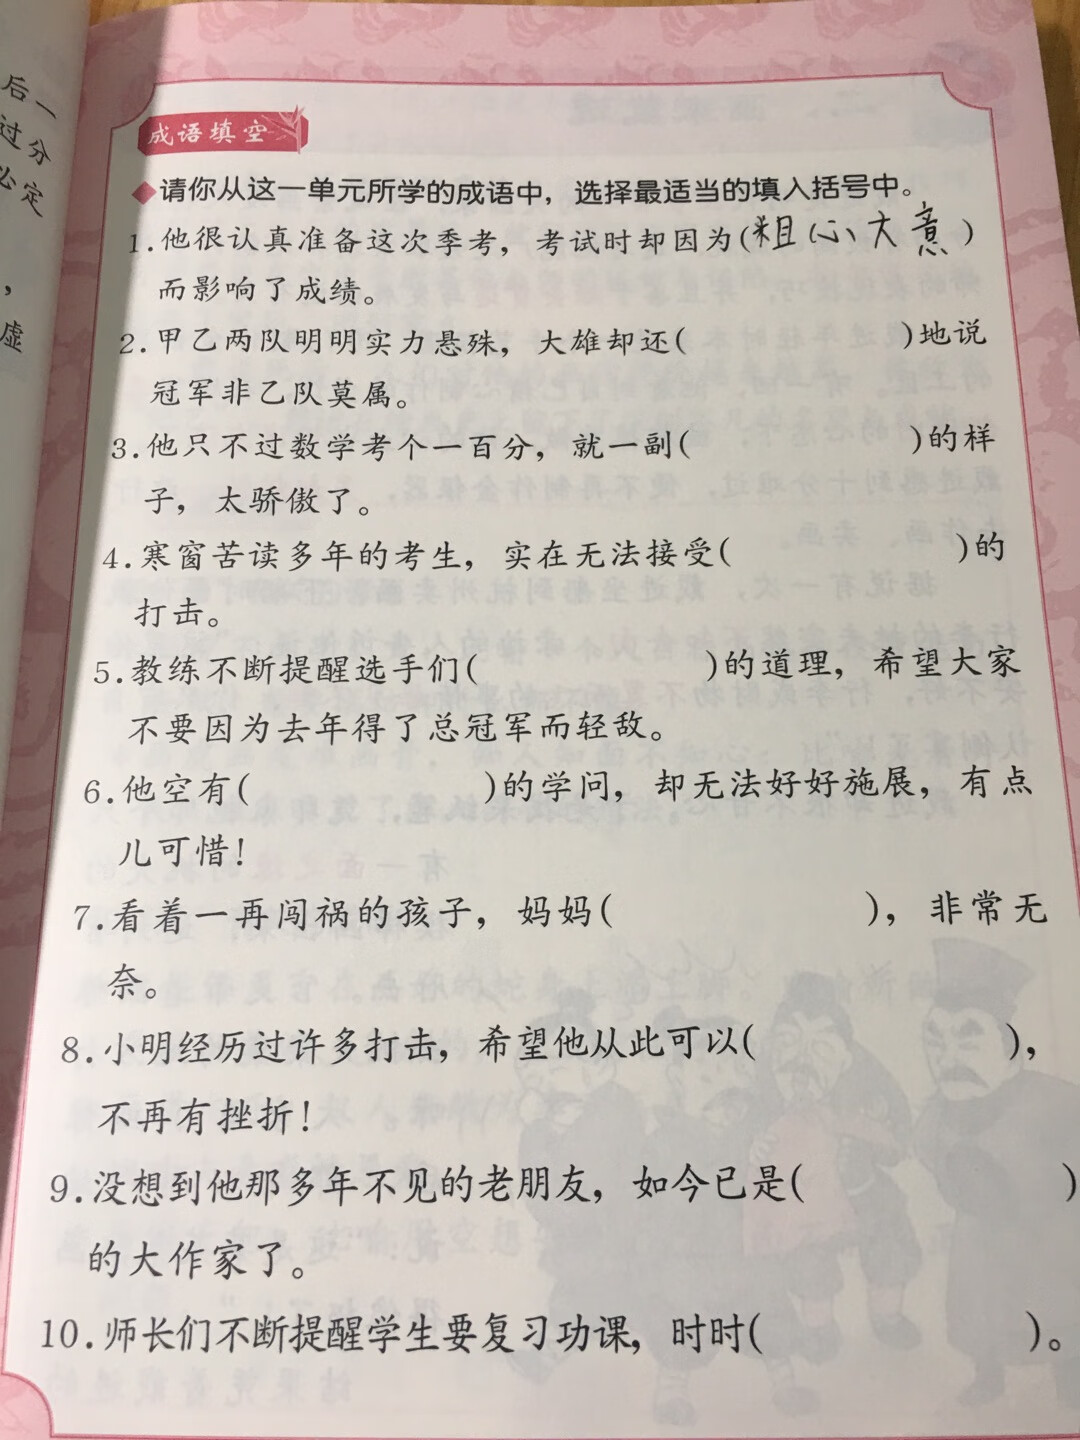 后一
过分
必定
，
虚
成语填空
◆请你从这一单元所学的成语中，选择最适当的填入括号中。
1.他很认真准备这次季考，考试时却因为(粗心大意)
而影响了成绩。
2.甲乙两队明明实力悬殊，大雄却还(　　　　)地说
冠军非乙队莫属。
3.他只不过数学考个一百分，就一副(　　　　)的样
子，太骄傲了。
4.寒窗苦读多年的考生，实在无法接受(　　　　)的
打击。
5.教练不断提醒选手们(　　　　)的道理，希望大家
不要因为去年得了总冠军而轻敌。
6.他空有(　　　　)的学问，却无法好好施展，有点
儿可惜！
7.看着一再闯祸的孩子，妈妈(　　　　)，非常无
奈。
8.小明经历过许多打击，希望他从此可以(　　　　)，
不再有挫折！
9.没想到他那多年不见的老朋友，如今已是(　　　　)
的大作家了。
10.师长们不断提醒学生要复习功课，时时(　　　　)。